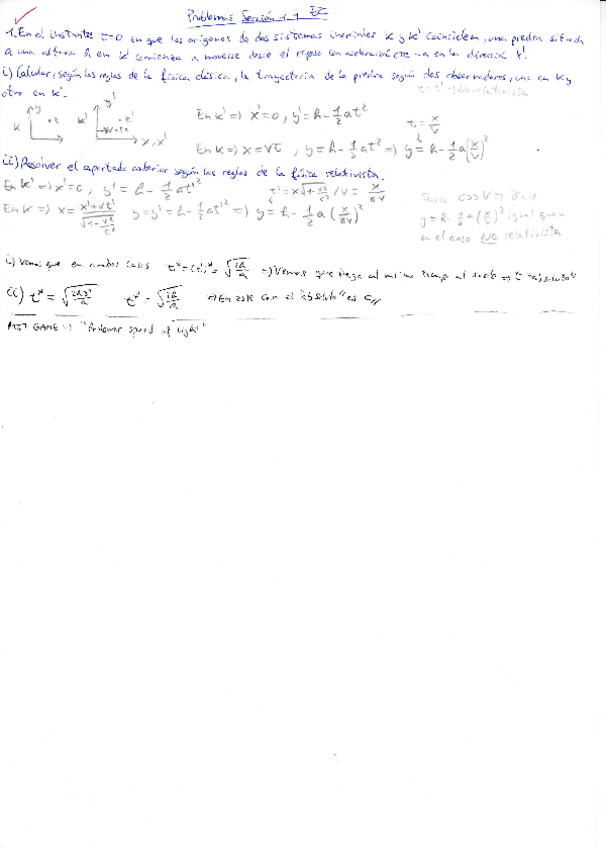 Problemas Sección 1.1
1. En el instante t=0 en que los orígenes de dos sistemas inerciales K y K' coinciden, una piedra situada
a una altura h en K' comienza a moverse desde el reposo con aceleración cte -a en la dirección Y'.
i) Calcular, según las reglas de la física clásica, la trayectoria de la piedra según dos observadores, uno en K y
otro en K'.
t=t' => No relativista
K y x y' K' x, x'
En K' => x'=0, y'=h-½at²
t=x/v
En K => x=vt, y=h-½at² => y=h-½a(x/v)²
ii) Resolver el apartado anterior según las reglas de la física relativista.
En K' => x'=0, y'=h-½at'²
En K => x= x'+vt' y=y'=h-½at'² => y=h-½a(x/γv)²
Para c>>v => γ≈1
igual que en
en el caso NO relativista
i) Vemos que en ambos casos t*=(t')*=√(2h/a) => Vemos que llega al mismo tiempo al suelo => t "absoluto"
=> En este caso el "absoluto" es c
MIT GAME => "A slower speed of light"